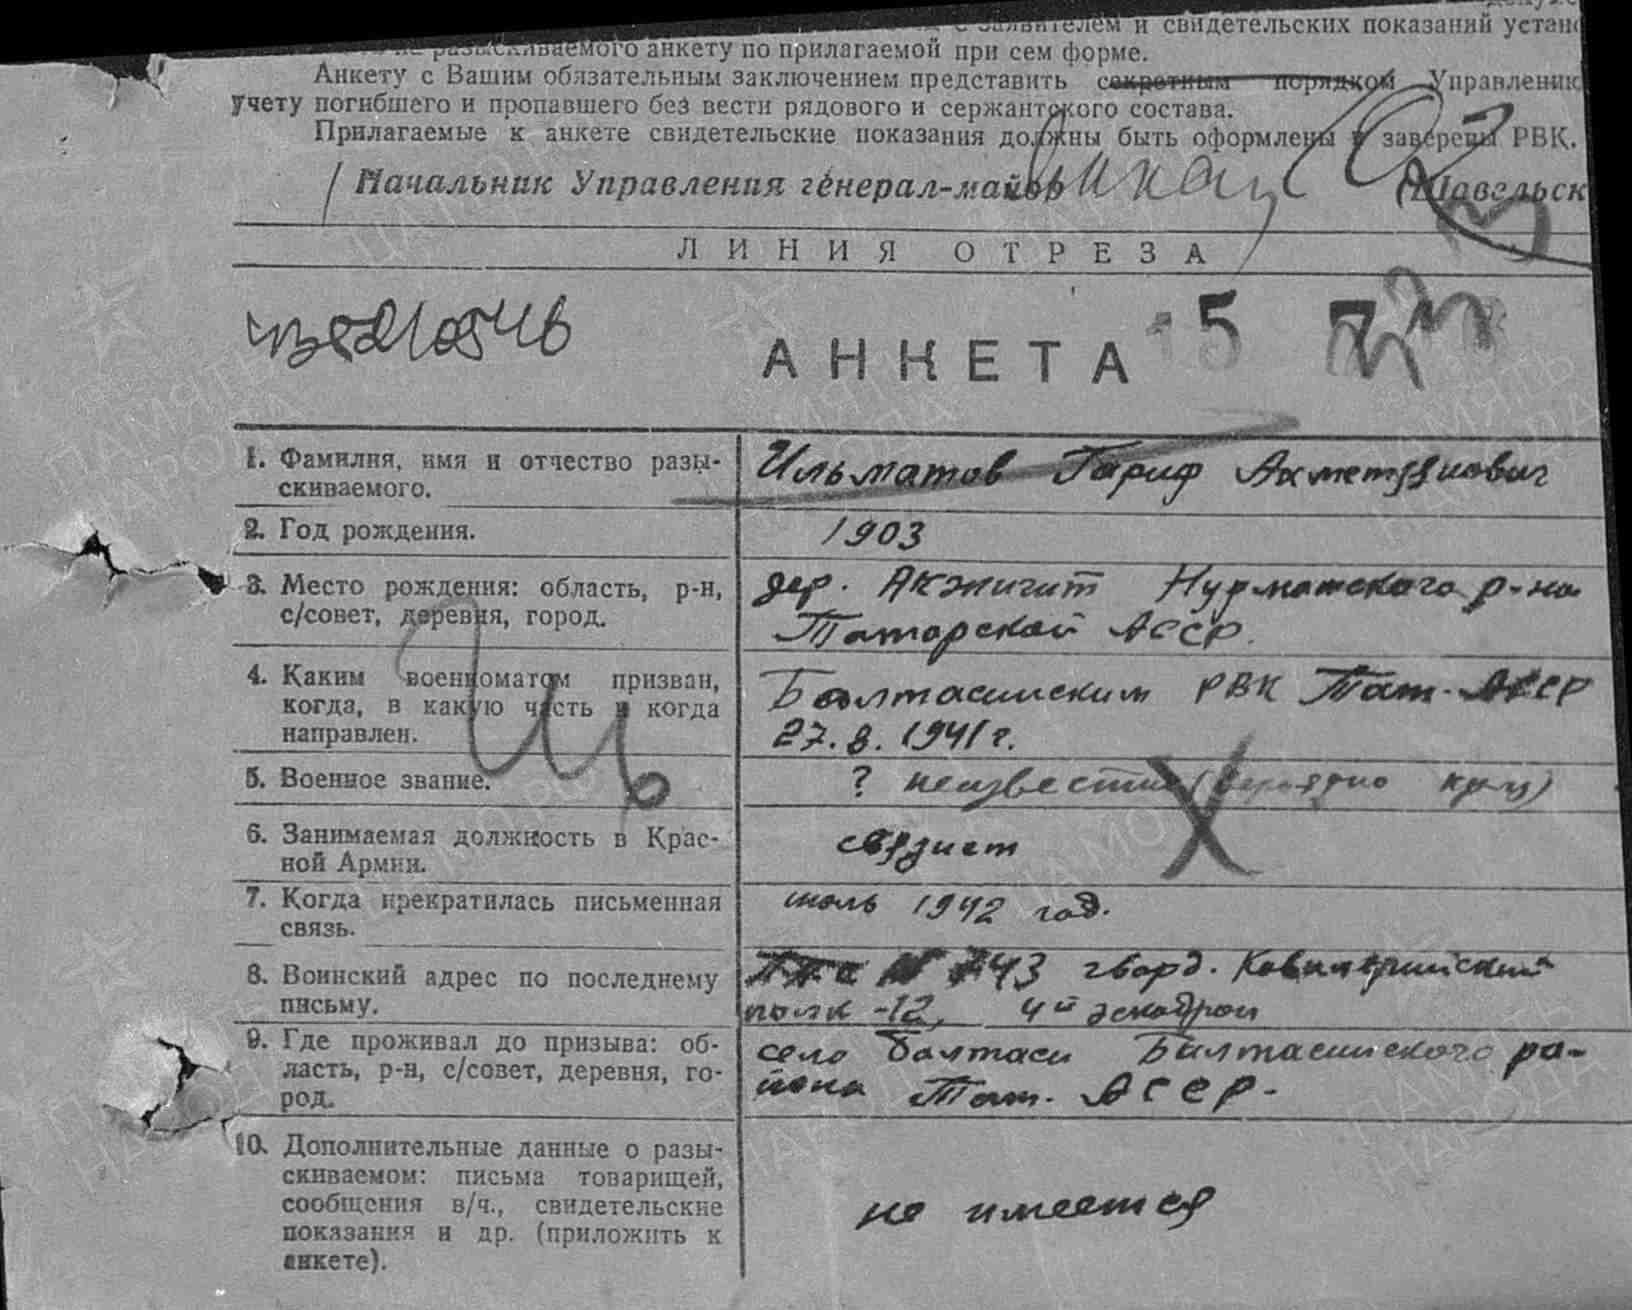 с заявителем и свидетельских показаний устано
разыскиваемого анкету по прилагаемой при сем форме.
Анкету с Вашим обязательным заключением представить секретным порядком Управлению
учету погибшего и пропавшего без вести рядового и сержантского состава.
Прилагаемые к анкете свидетельские показания должны быть оформлены и заверены РВК.
Начальник Управления генерал-майор (Шавельск
ЛИНИЯ ОТРЕЗА
АНКЕТА 15
1. Фамилия, имя и отчество разы-
скиваемого.
Ильматов Гариф Ахметзянович
2. Год рождения.
1903
3. Место рождения: область, р-н,
с/совет, деревня, город.
дер. Акжигит Нурматского р-на
Татарской АССР.
4. Каким военкоматом призван,
когда, в какую часть и когда
направлен.
Балтасинским РВК Тат. АССР
27.8.1941 г.
5. Военное звание.
? неизвестно
6. Занимаемая должность в Крас-
ной Армии.
связист
7. Когда прекратилась письменная
связь.
июль 1942 год.
8. Воинский адрес по последнему
письму.
43 гвард. Кавалерийский
полк -12, 4й эскадрон
9. Где проживал до призыва: об-
ласть, р-н, с/совет, деревня, го-
род.
село Балтаси Балтасинского ра-
йона Тат. АССР.
10. Дополнительные данные о разы-
скиваемом: письма товарищей,
сообщения в/ч., свидетельские
показания и др. (приложить к
анкете).
не имеется